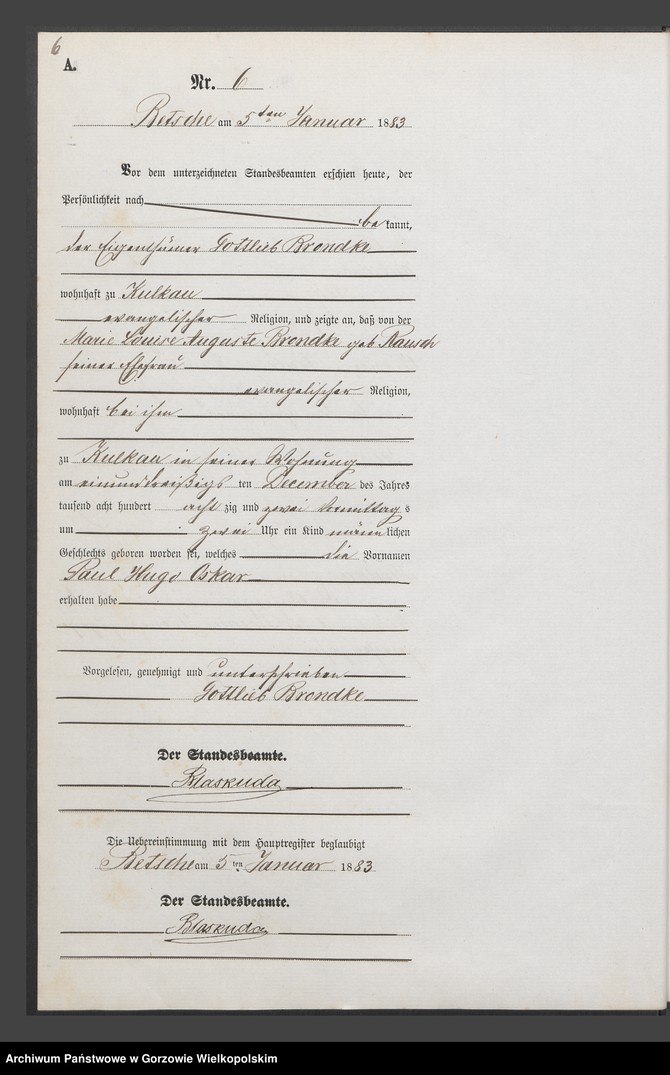 6
A.
Nr. 6
Betsche am 5ten Januar 1883
Vor dem unterzeichneten Standesbeamten erschien heute, der
Persönlichkeit nach
bekannt,
der Eigenthümer Gottlieb Brondke
wohnhaft zu Kulkau
evangelischer Religion, und zeigte an, daß von der
Marie Louise Auguste Brondke geb. Rausch
seiner Ehefrau
evangelischer Religion,
wohnhaft bei ihm
zu Kulkau in seiner Wohnung
am einunddreißigs ten December des Jahres
tausend acht hundert acht zig und zwei Vormittag s
um zwei Uhr ein Kind männ lichen
Geschlechts geboren worden sei, welches die Vornamen
Paul Hugo Oskar
erhalten habe
Vorgelesen, genehmigt und unterschrieben
Gottlieb Brondke
Der Standesbeamte.
Blaskuda
Die Uebereinstimmung mit dem Hauptregister beglaubigt
Betsche am 5 ten Januar 1883
Der Standesbeamte.
Blaskuda
Archiwum Państwowe w Gorzowie Wielkopolskim